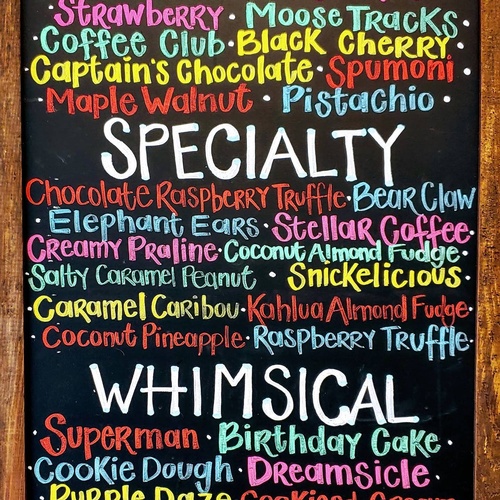 Strawberry · Moose Tracks
· Coffee Club · Black Cherry
Captain's Chocolate · Spumoni ·
· Maple Walnut · Pistachio ·
SPECIALTY
Chocolate Raspberry Truffle · Bear Claw
· Elephant Ears · Stellar Coffee ·
Creamy Praline · Coconut Almond Fudge ·
· Salty Caramel Peanut · Snickelicious ·
Caramel Caribou · Kahlua Almond Fudge ·
· Coconut Pineapple · Raspberry Truffle ·
WHIMSICAL
· Superman · Birthday Cake ·
Cookie Dough · Dreamsicle ·
· Purple Daze